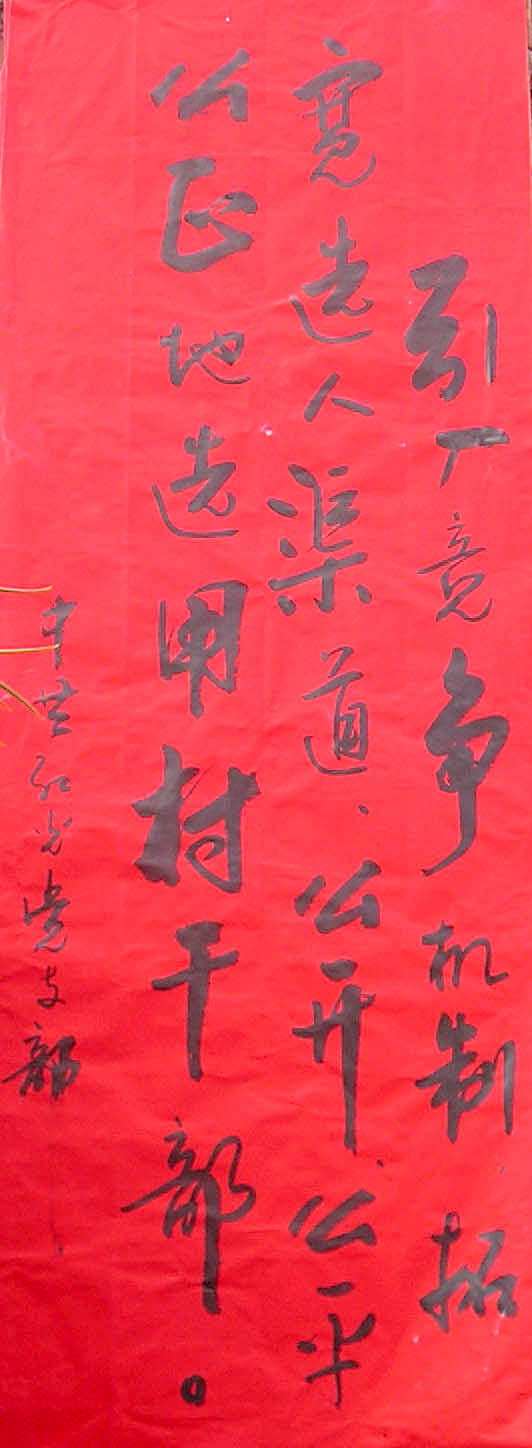 引厂竞争机制拓
宽选人渠道、公开、公平
公正地选用村干部。
中共红光党支部